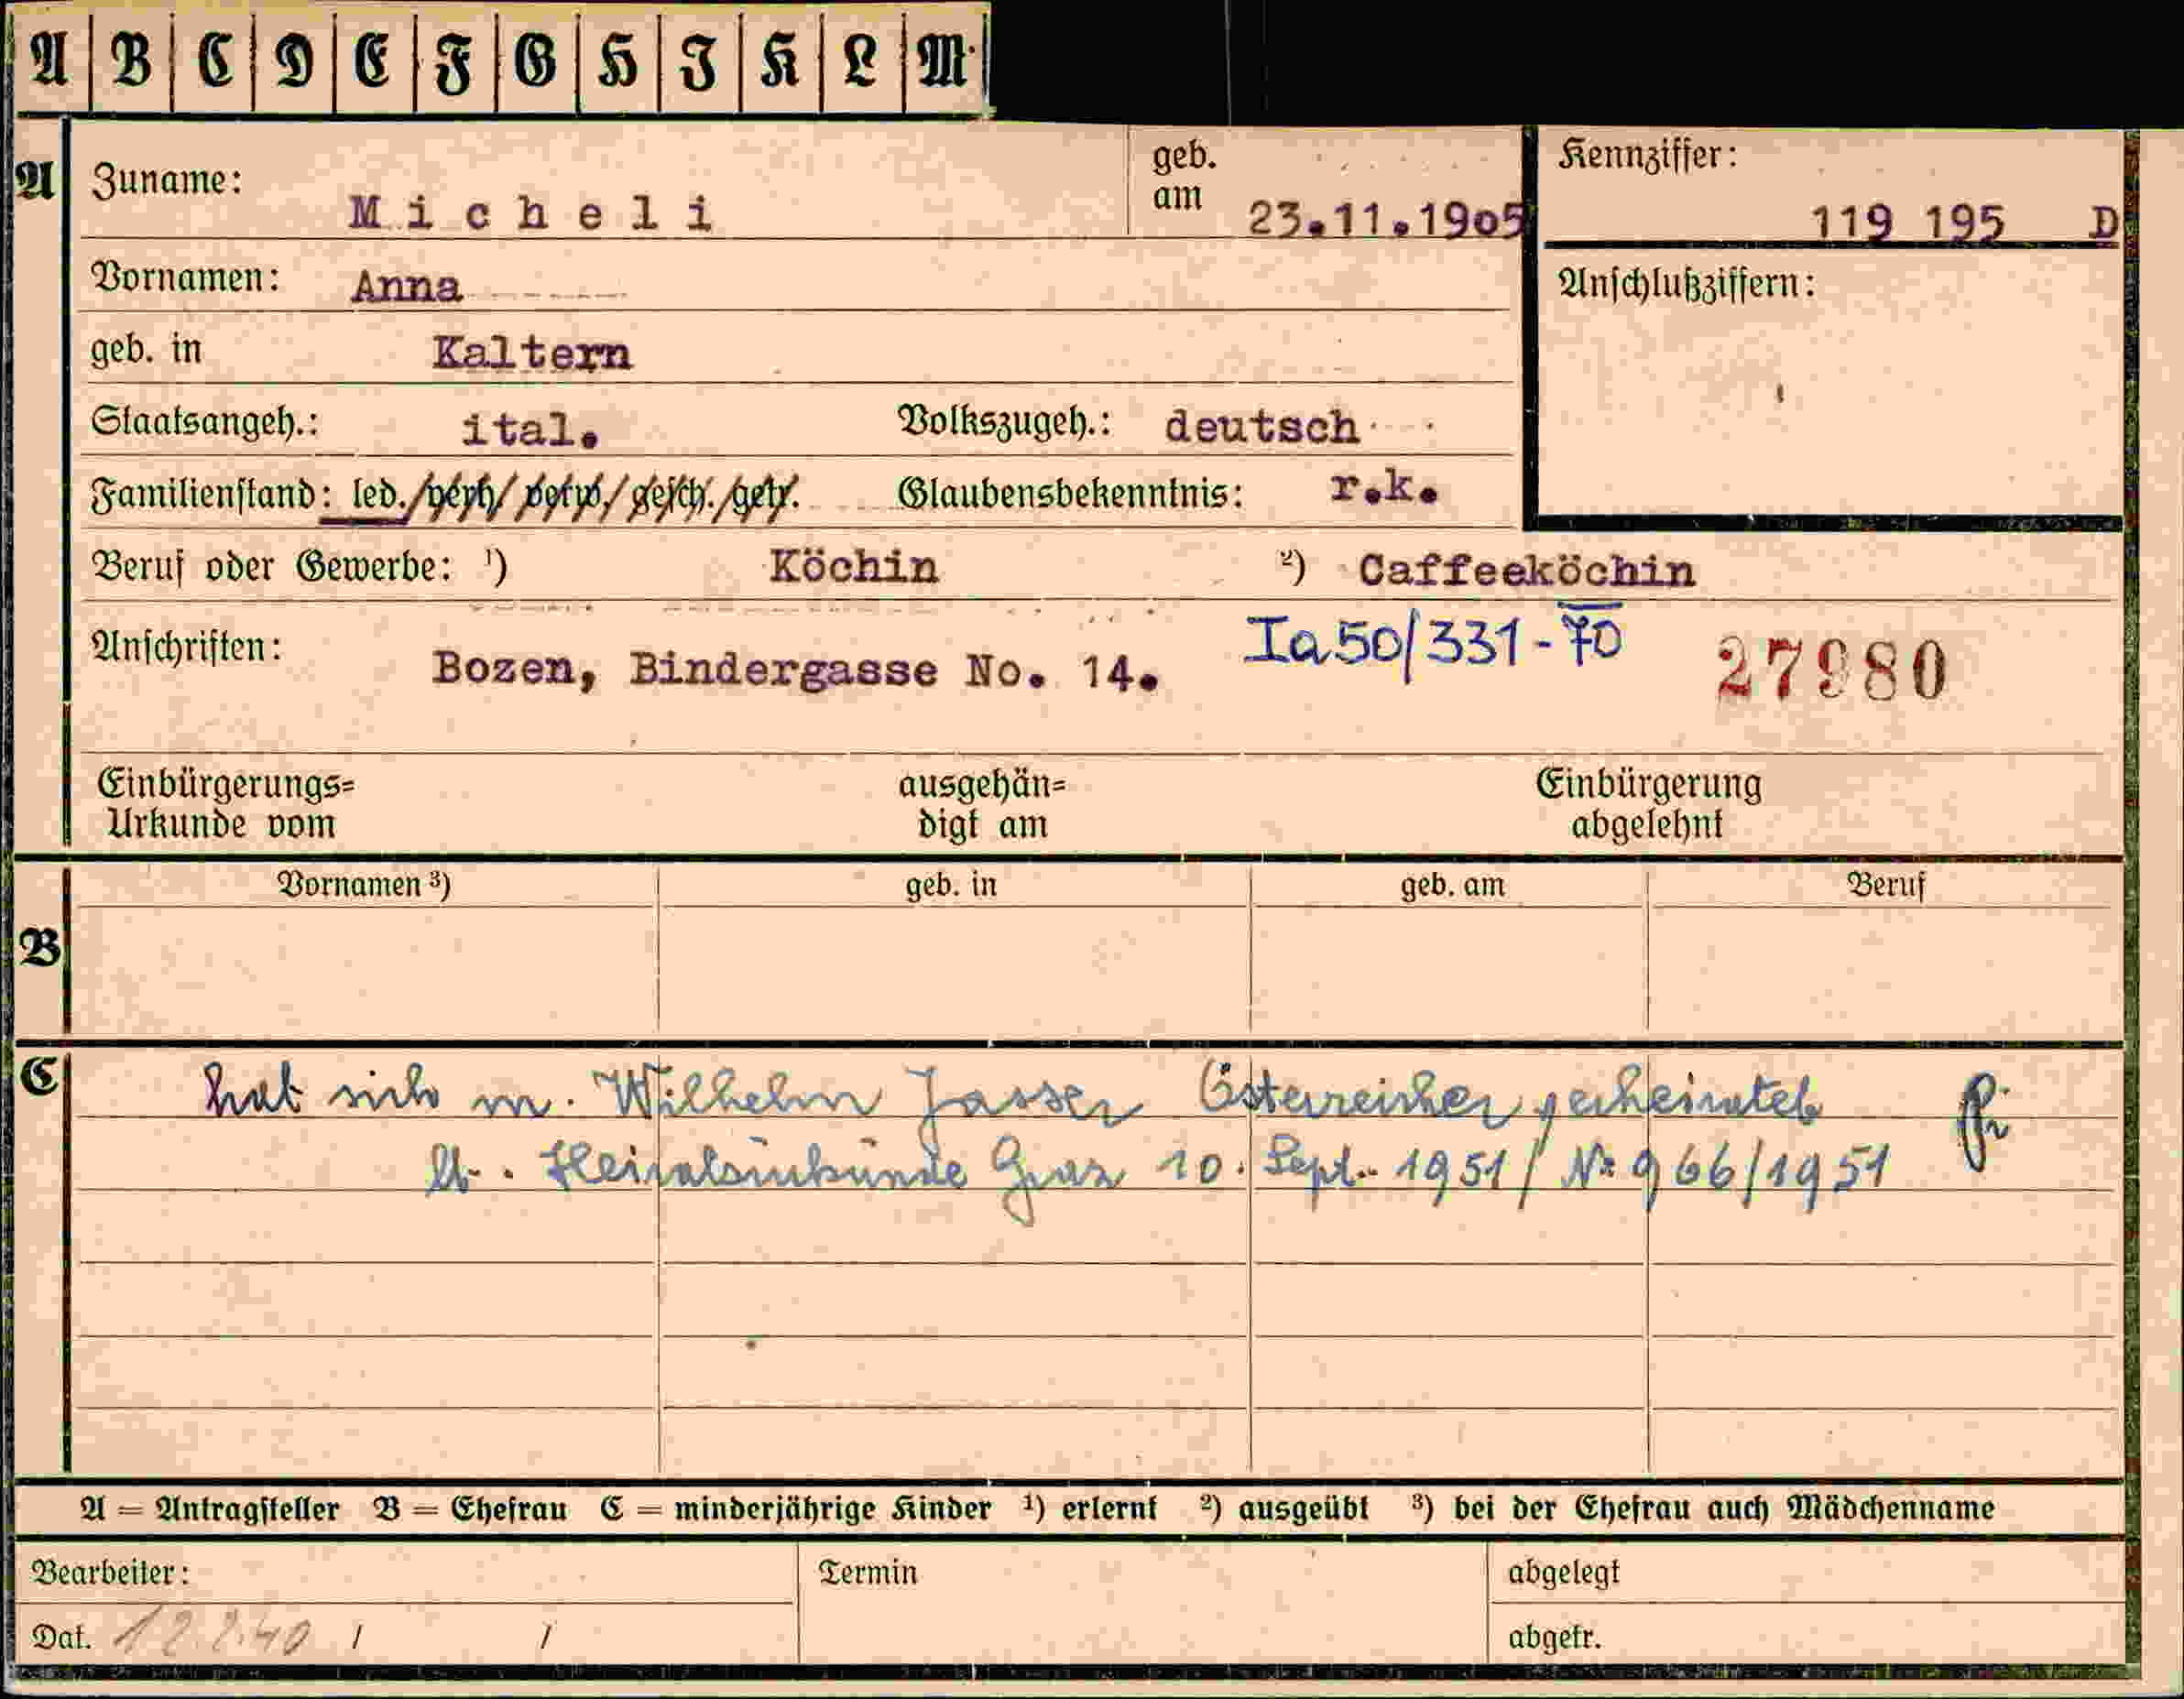 A B C D E F G H I K L M
A Zuname: Micheli geb. am 23.11.1905 Kennziffer: 119 195 D
Vornamen: Anna Anschlußziffern:
geb. in Kaltern
Staatsangeh.: ital. Volkszugeh.: deutsch
Familienstand: led./verh/verw./gesch./getr. Glaubensbekenntnis: r.k.
Beruf oder Gewerbe: ¹) Köchin ²) Caffeeköchin
Anschriften: Bozen, Bindergasse No. 14. Ia50/331-70 27980
Einbürgerungs= ausgehän= Einbürgerung
Urkunde vom digt am abgelehnt
B Vornamen ³) geb. in geb. am Beruf
C hat sich m. Wilhelm Jasser Österreicher verheiratet
lt. Heiratsurkunde Graz 10. Sept. 1951/ Nr 966/1951
A = Antragsteller B = Ehefrau C = minderjährige Kinder ¹) erlernt ²) ausgeübt ³) bei der Ehefrau auch Mädchenname
Bearbeiter: Termin abgelegt
Dat. 12.2.40 / / abgetr.